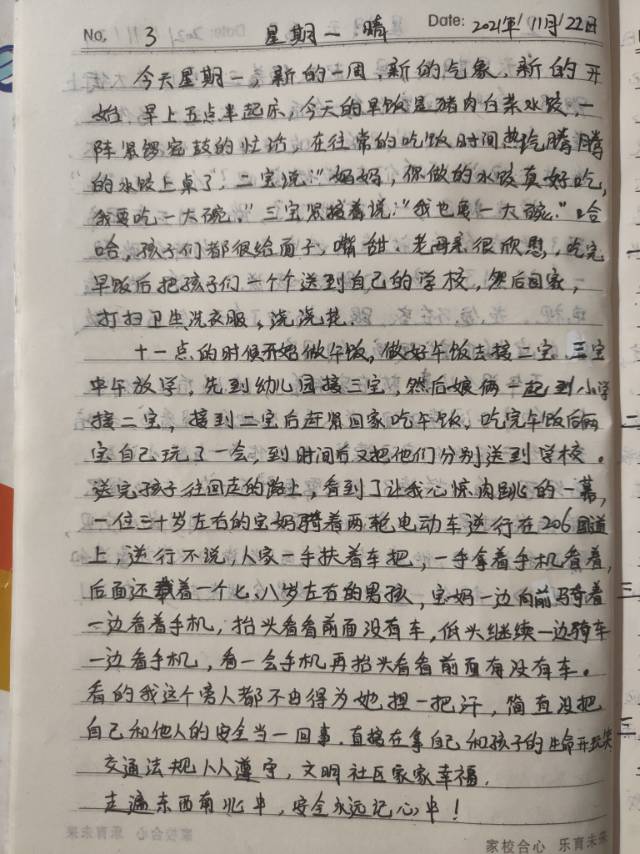 No. 3 星期一 晴 Date: 2021年11月22日
今天星期一，新的一周，新的气象，新的开
始，早上五点半起床，今天的早饭是猪肉白菜水饺，一
阵紧锣密鼓的忙活，在往常的吃饭时间热气腾腾
的水饺上桌了，二宝说：“妈妈，你做的水饺真好吃，
我要吃一大碗。”三宝紧接着说：“我也要一大碗。”哈
哈，孩子们都很给面子，嘴甜，老母亲很欣慰，吃完
早饭后把孩子们一个个送到自己的学校，然后回家，
打扫卫生洗衣服，浇浇花。
十一点的时候开始做午饭，做好午饭去接二宝 三宝
中午放学，先到幼儿园接三宝，然后娘俩一起到小学
接二宝，接到二宝后赶紧回家吃午饭，吃完午饭后两
宝自己玩了一会，到时间后又把他们分别送到学校。
送完孩子往回走的路上，看到了让我心惊肉跳的一幕，
一位三十岁左右的宝妈骑着两轮电动车逆行在206国道
上，逆行不说，人家一手扶着车把，一手拿着手机看着，
后面还载着一个七、八岁左右的男孩，宝妈一边向前骑着
一边看着手机，抬头看看前面没有车，低头继续一边骑车
一边看手机，看一会手机再抬头看看前面有没有车。
看的我这个旁人都不由得为她捏一把汗，简直没把
自己和他人的安全当一回事，直接在拿自己和孩子的生命开玩笑
交通法规人人遵守，文明社区家家幸福，
走遍东西南北中，安全永远记心中！
家校合心 乐育未来